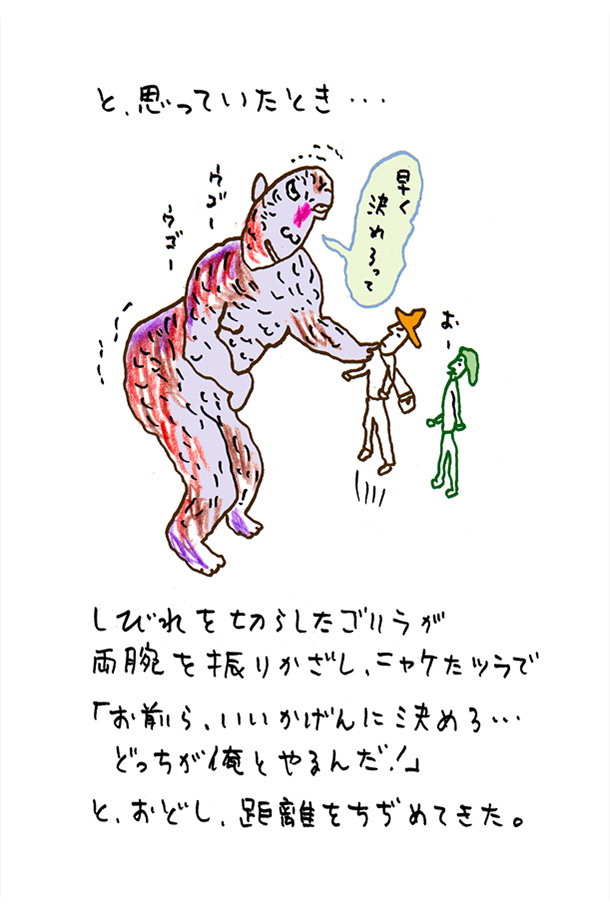 と、思っていたとき・・・
ウゴー
ウゴー
早く
決めろって
おー
しびれを切らしたゴリラが
両腕を振りかざし、ニヤケたツラで
「お前ら、いいかげんに決めろ・・・
どっちが俺とやるんだ!」
と、おどし、距離をちぢめてきた。